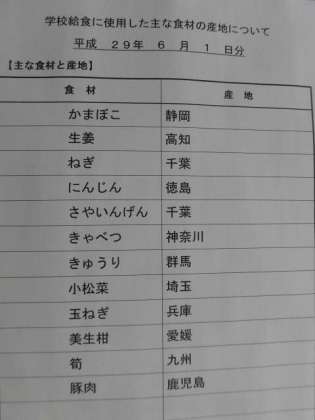 学校給食に使用した主な食材の産地について
平成 29年 6 月 1 日分
【主な食材と産地】
食 材 産 地
かまぼこ 静岡
生姜 高知
ねぎ 千葉
にんじん 徳島
さやいんげん 千葉
きゃべつ 神奈川
きゅうり 群馬
小松菜 埼玉
玉ねぎ 兵庫
美生柑 愛媛
筍 九州
豚肉 鹿児島